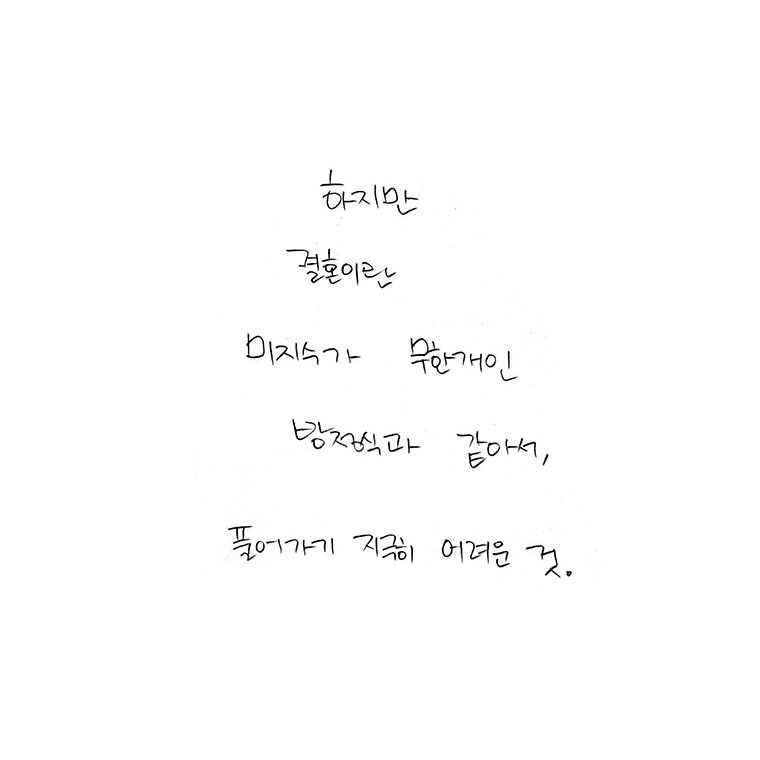 하지만
결혼이란
미지수가 무한개인
방정식과 같아서,
풀어가기 지극히 어려운 것.